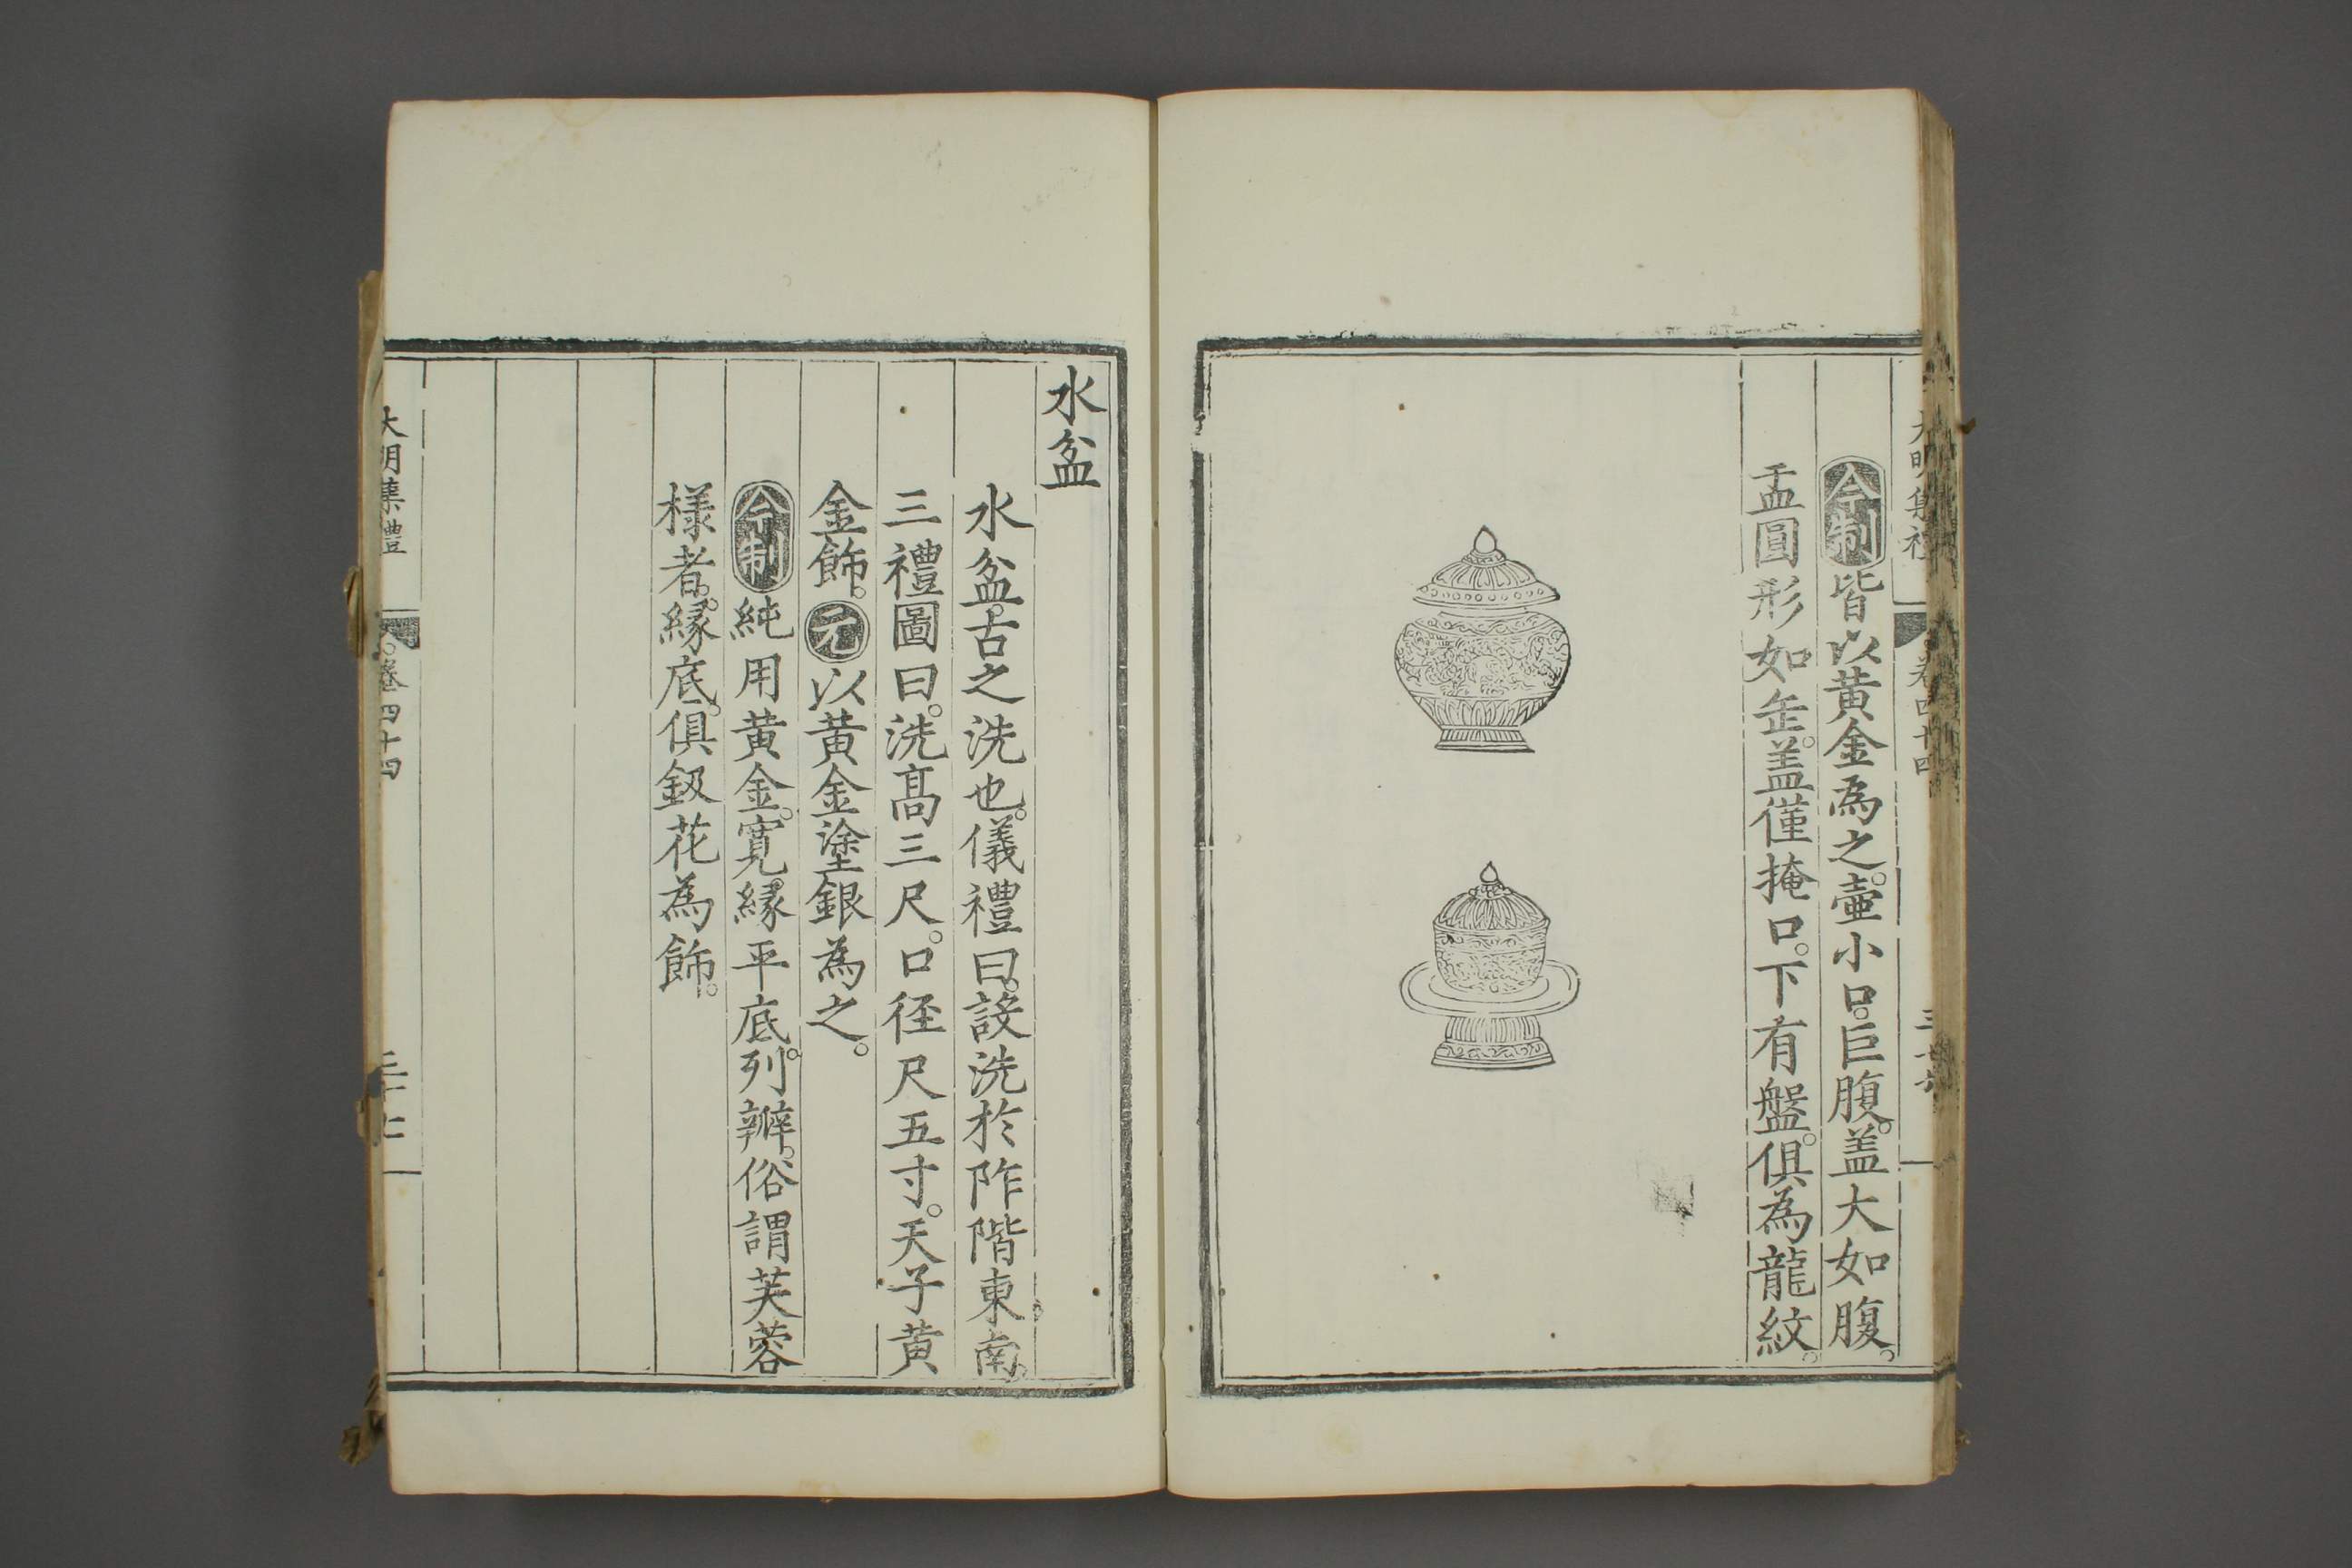 大明集禮 卷四十四 三十六
今制皆以黄金為之。壷小口。巨腹。盖大如腹。
盂圓形如缶。盖僅掩口。下有盤。俱為龍紋。
水盆
水盆。古之洗也。儀禮曰。設洗於阼階東南。
三禮圖曰。洗髙三尺。口徑尺五寸。天子黄
金飾。元以黄金塗銀為之。
今制純用黄金。寛緣平底。列瓣。俗謂芙蓉
樣者。緣底。俱鈒花為飾。
大明集禮 卷四十四 三十七